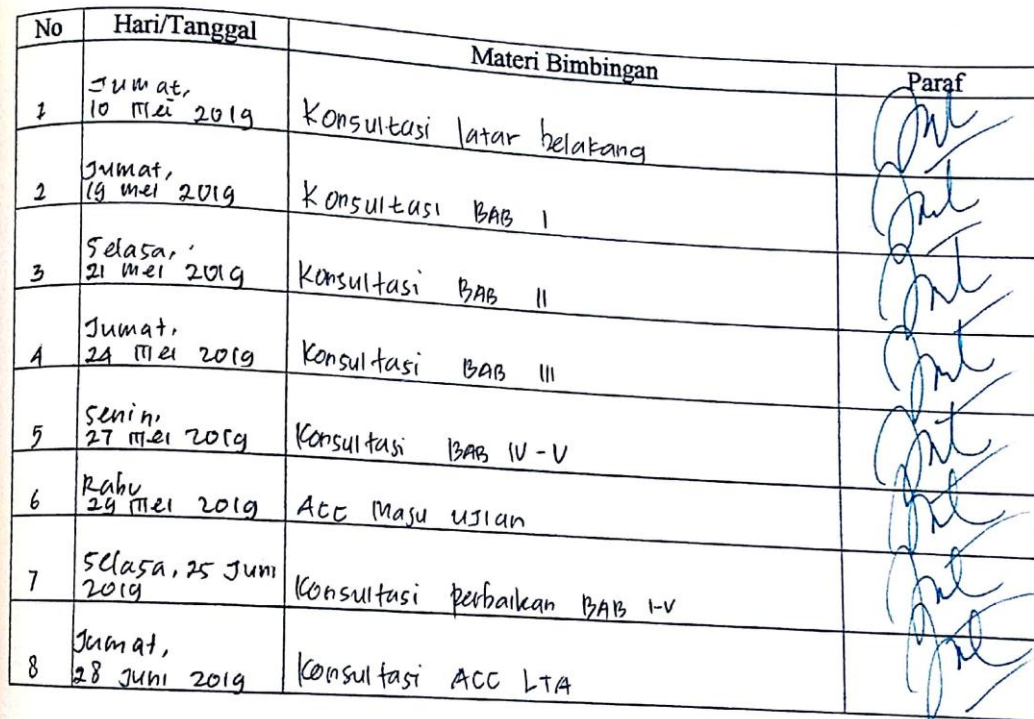 No Hari/Tanggal Materi Bimbingan Paraf
1 Jumat,
10 Mei 2019 Konsultasi latar belakang
2 Jumat,
19 mei 2019 Konsultasi BAB I
3 Selasa,
21 mei 2019 Konsultasi BAB II
4 Jumat,
24 Mei 2019 Konsultasi BAB III
5 Senin,
27 Mei 2019 Konsultasi BAB IV - V
6 Rabu
29 Mei 2019 Acc Maju Ujian
7 Selasa, 25 Juni
2019 Konsultasi perbaikan BAB I-V
8 Jumat,
28 Juni 2019 Konsultasi ACC LTA